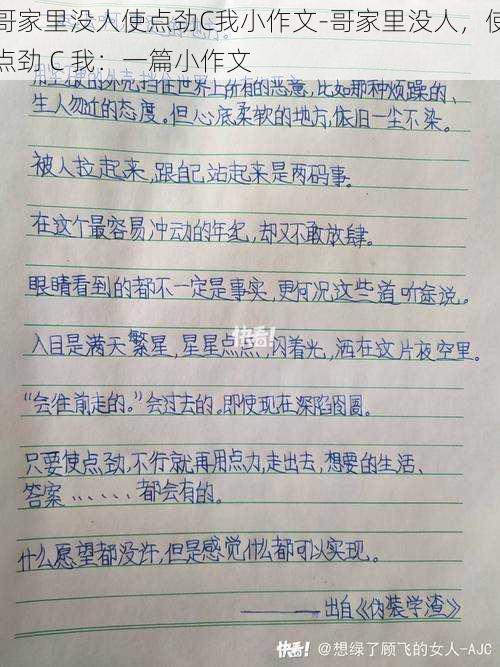 哥家里没人使点劲C我小作文-哥家里没人，使
点劲 C 我：一篇小作文
的外壳挡住世界上所有的恶意,比如那种烦躁的、
生人勿近的态度。但心底柔软的地方,依旧一尘不染。
被人拉起来,跟自己站起来是两码事。
在这个最容易冲动的年纪,却又不敢放肆。
眼睛看到的都不一定是事实,更何况这些道听途说。
入目是满天繁星,星星点点,闪着光,洒在这片夜空里。
快看!
“会往前走的。”会过去的。即使现在深陷囹圄。
只要使点劲,不行就再用点力,走出去,想要的生活、
答案......都会有的。
什么愿望都没许,但是感觉什么都可以实现。
——出自《伪装学渣》
快看! @想绿了顾飞的女人-AJC